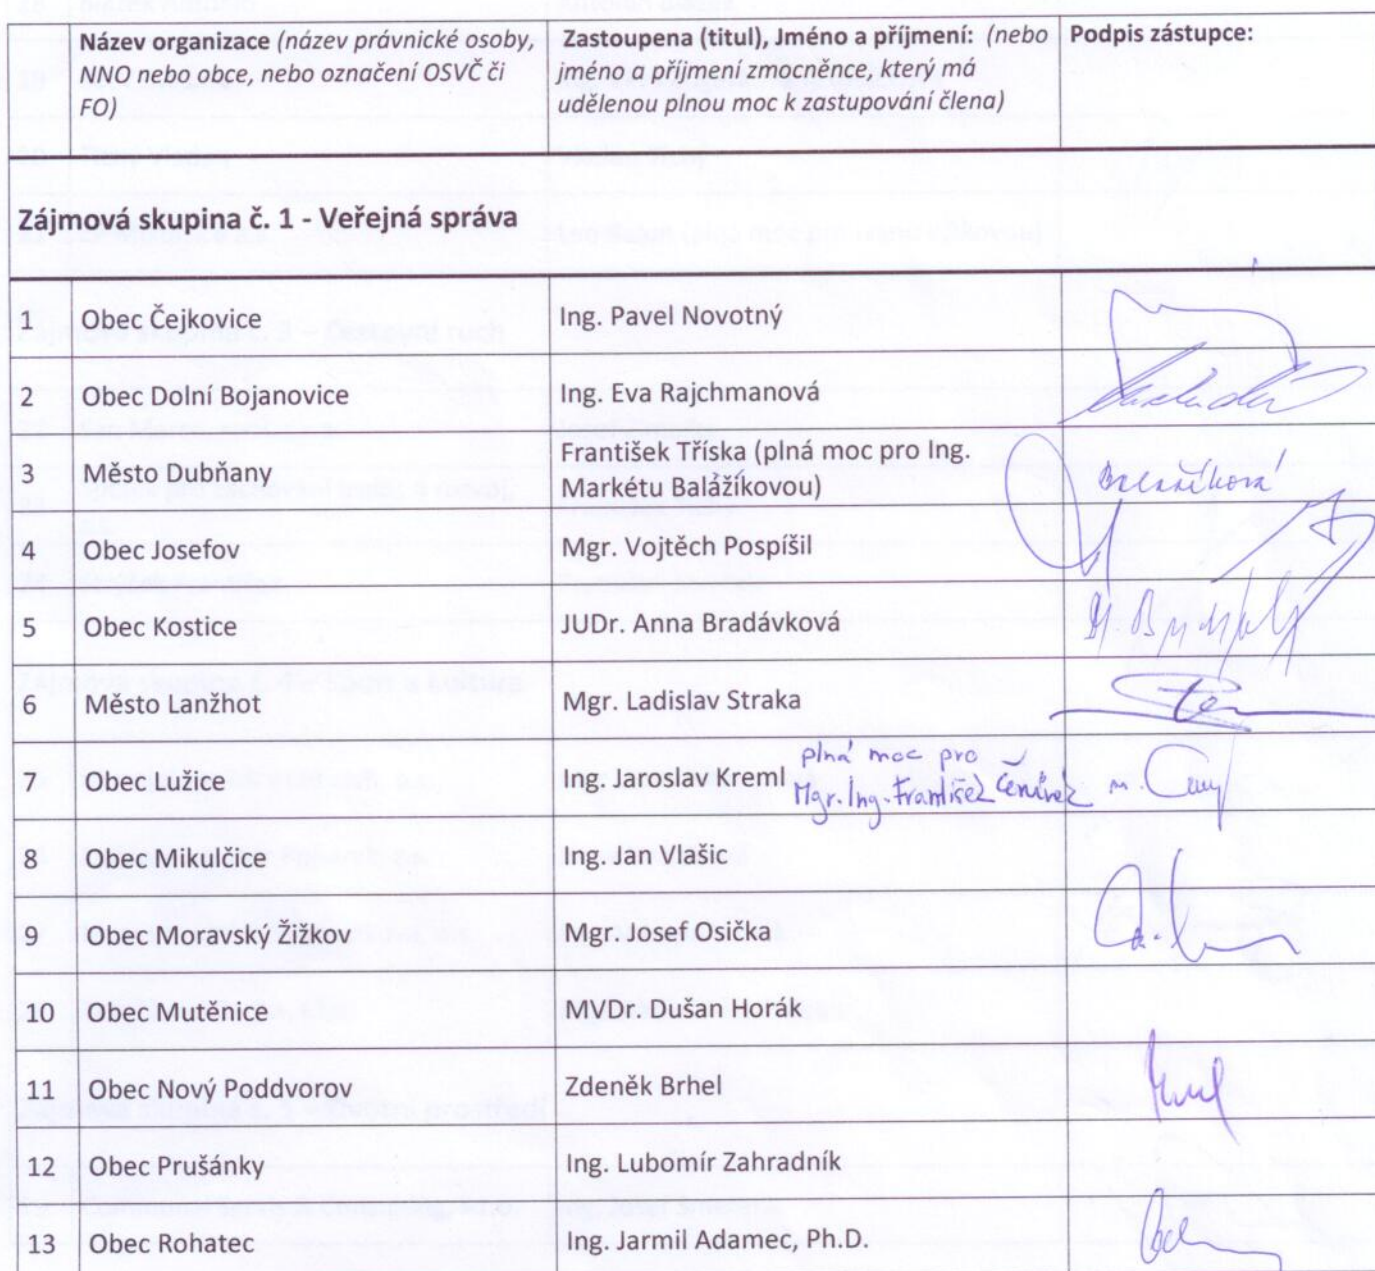 Název organizace (název právnické osoby,
NNO nebo obce, nebo označení OSVČ či
FO)
Zastoupena (titul), Jméno a příjmení: (nebo
jméno a příjmení zmocněnce, který má
udělenou plnou moc k zastupování člena)
Podpis zástupce:
Zájmová skupina č. 1 - Veřejná správa
1 Obec Čejkovice Ing. Pavel Novotný
2 Obec Dolní Bojanovice Ing. Eva Rajchmanová
3 Město Dubňany František Tříska (plná moc pro Ing.
Markétu Balážíkovou)
4 Obec Josefov Mgr. Vojtěch Pospíšil
5 Obec Kostice JUDr. Anna Bradávková
6 Město Lanžhot Mgr. Ladislav Straka
7 Obec Lužice Ing. Jaroslav Kreml plná moc pro
Mgr. Ing. František
8 Obec Mikulčice Ing. Jan Vlašic
9 Obec Moravský Žižkov Mgr. Josef Osička
10 Obec Mutěnice MVDr. Dušan Horák
11 Obec Nový Poddvorov Zdeněk Brhel
12 Obec Prušánky Ing. Lubomír Zahradník
13 Obec Rohatec Ing. Jarmil Adamec, Ph.D.